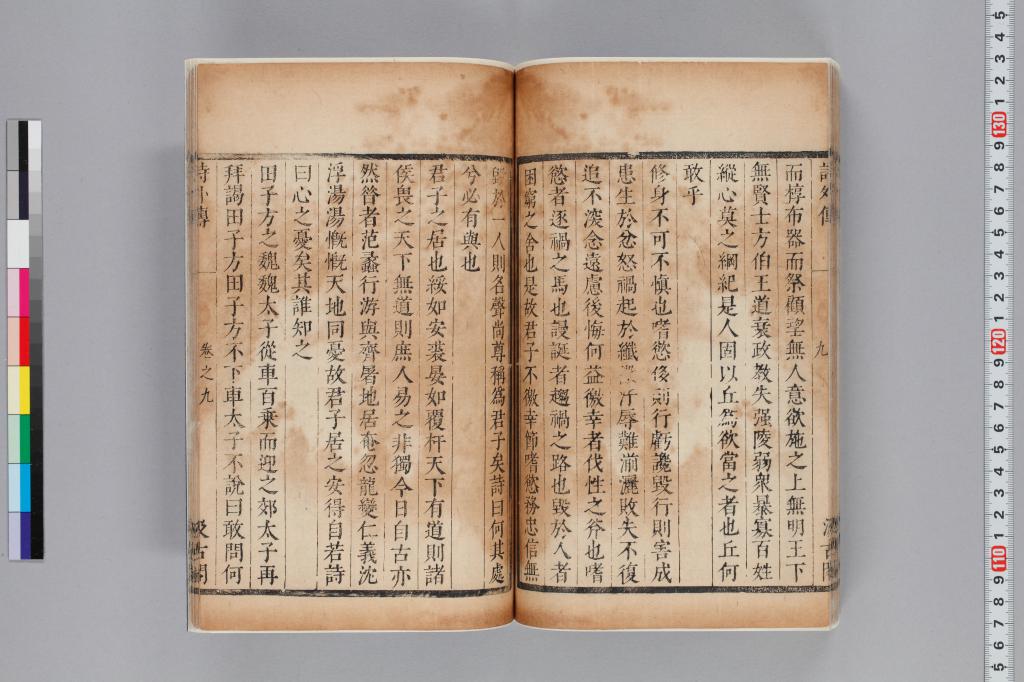 詩外傳
九
汲古閣
而椁布器而祭顧望無人意欲施之上無明王下
無賢士方伯王道衰政教失强陵弱衆暴寡百姓
縱心莫之綱紀是人固以丘爲欲當之者也丘何
敢乎
修身不可不慎也嗜慾侈則行虧讒毀行則害成
患生於忿怒禍起於纖微汙辱難湔灑敗失不復
追不深念遠慮後悔何益徼幸者伐性之斧也嗜
慾者逐禍之馬也謾誕者趨禍之路也毀於人者
困窮之舍也是故君子不徼幸節嗜慾務忠信無
毀於一人則名聲尚尊稱爲君子矣詩曰何其處
兮必有與也
君子之居也綏如安裘晏如覆杅天下有道則諸
侯畏之天下無道則庶人易之非獨今日自古亦
然昔者范蠡行游與齊屠地居奄忽龍變仁義沈
浮湯湯慨慨天地同憂故君子居之安得自若詩
曰心之憂矣其誰知之
田子方之魏魏太子從車百乘而迎之郊太子再
拜謁田子方田子方不下車太子不說曰敢問何
詩外傳
卷之九
汲古閣